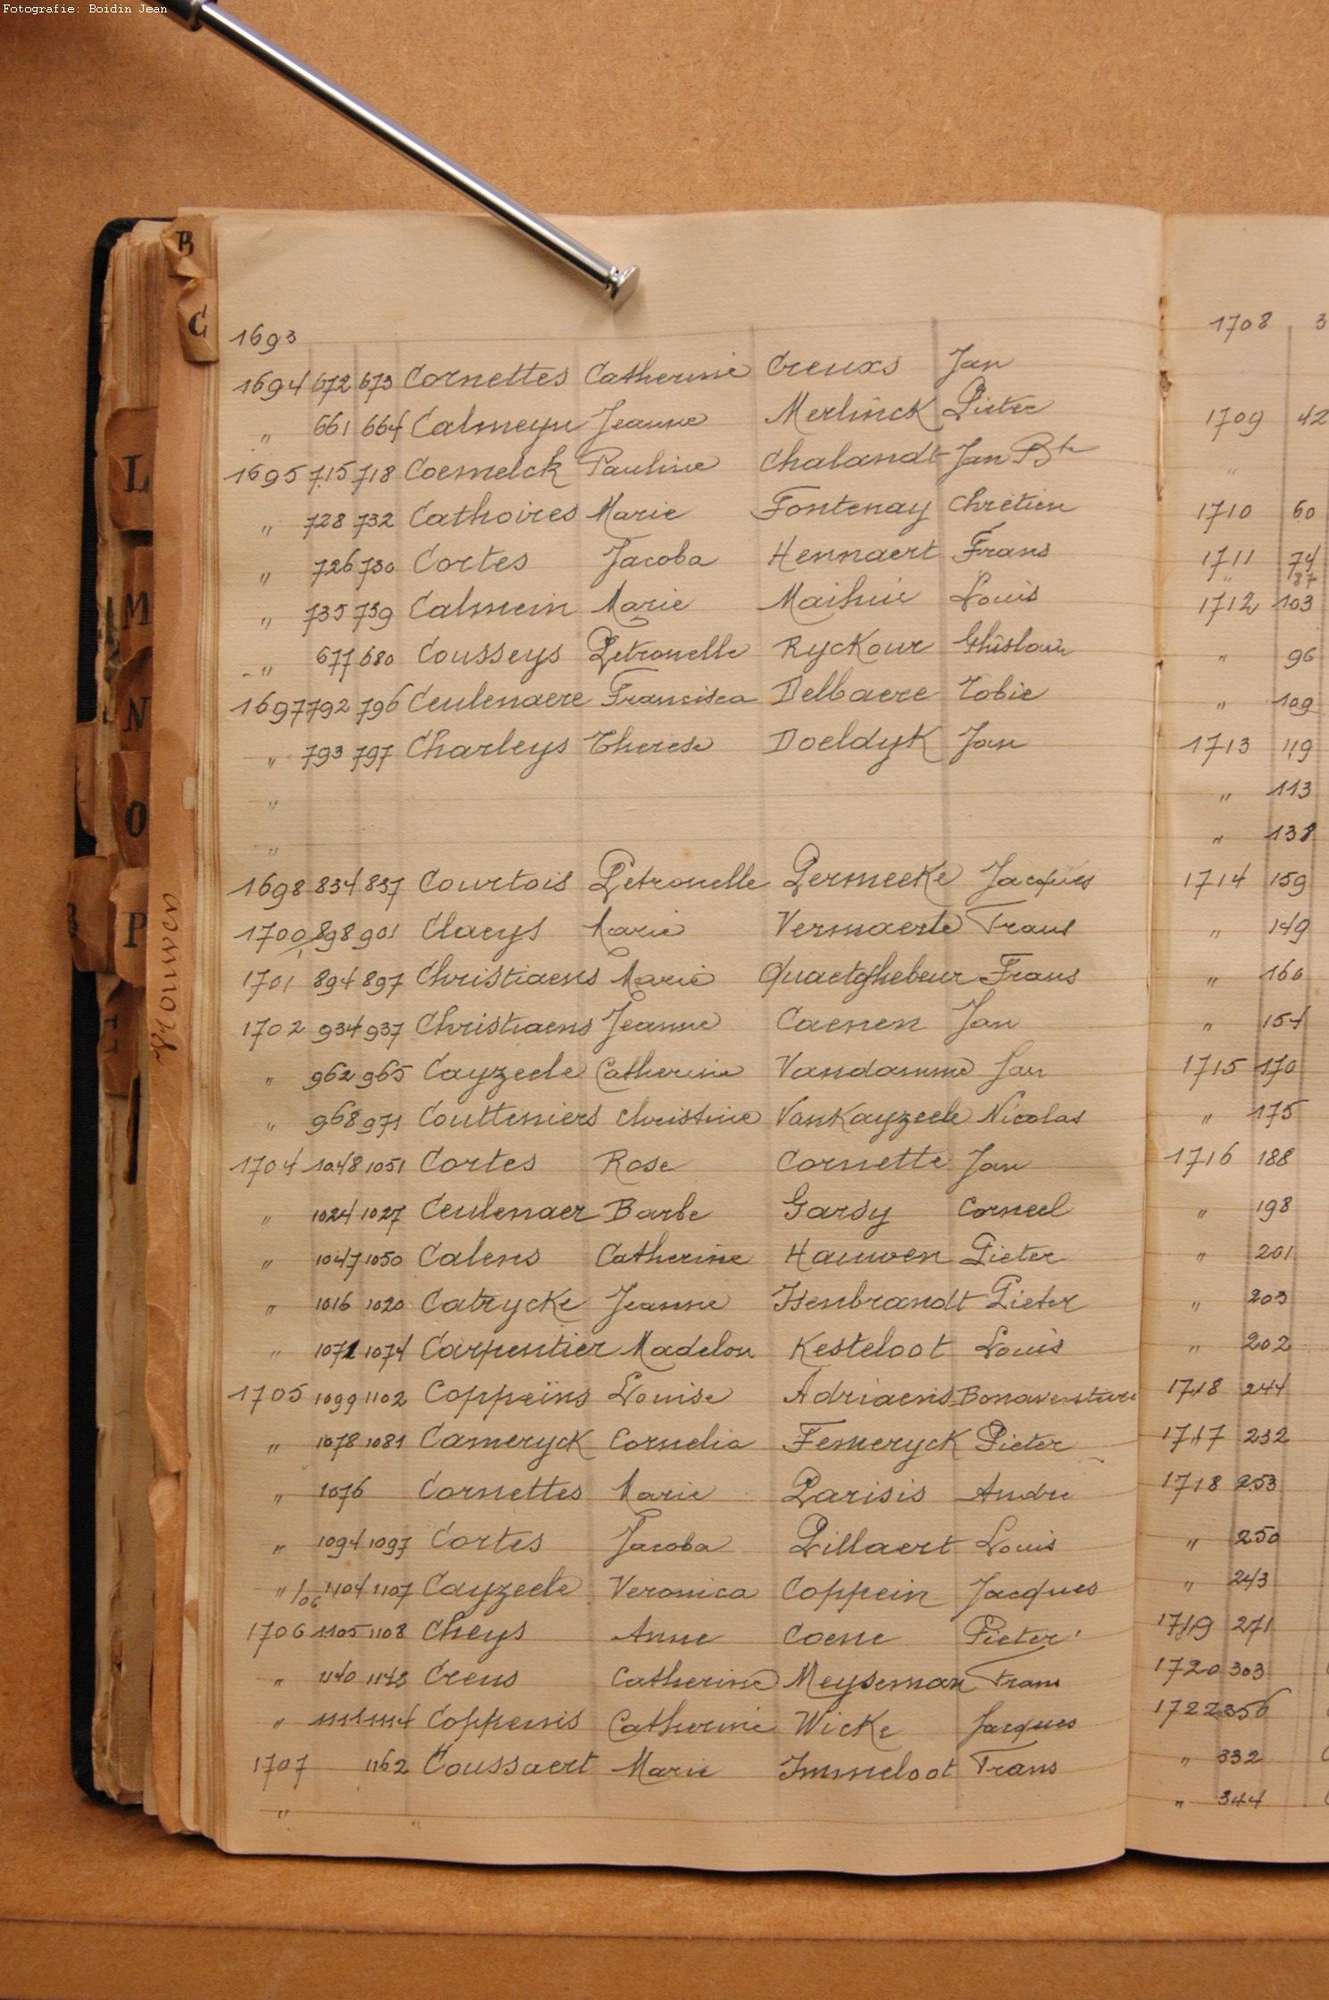 Fotografie: Boidin Jean
B
C
L
M
N
O
P
Vrouwen
1693
1694 672 673 Cornettes Catherine Creuxs Jan
" 661 664 Calmeyn Jeanne Merlinck Pieter
1695 715 718 Coemelck Pauline Chalandt Jan Bte
" 728 732 Cathoires Marie Fontenay Chretien
" 726 730 Cortes Jacoba Hennaert Frans
" 735 739 Calmein Marie Louis
" 677 680 Cousseys Petronelle Ryckour Ghislain
1697 792 796 Ceulenaere Francisca Delbaere Tobie
" 793 797 Charleys Therese Doeldyk Jan
"
"
1698 834 837 Courtois Petronelle Permeeke Jacques
1700 898 901 Claeys Marie Vermaerte Frans
1701 894 897 Christiaens Marie Quaetghebeur Frans
1702 934 937 Christiaens Jeanne Caenen Jan
" 962 965 Cayzeele Catherine Vandamme Jan
" 968 971 Coutteniers Christine VanKayzeele Nicolas
1704 1048 1051 Cortes Rose Cornette Jan
" 1024 1027 Ceulenaer Barbe Gardy Corneel
" 1047 1050 Calens Catherine Hauwen Pieter
" 1016 1020 Catrycke Jeanne Isenbrandt Pieter
" 1071 1074 Carpentier Madelon Kesteloot Louis
1705 1099 1102 Coppeins Louise Adriaens Bonaventure
" 1078 1081 Cameryck Cornelia Femeryck Pieter
" 1076 Cornettes Marie Parisis Andre
" 1094 1097 Cortes Jacoba Pillaert Louis
" /06 1104 1107 Cayzeele Veronica Coppein Jacques
1706 1105 1108 Cheys Anne Coene Pieter
" 1140 1143 Creus Catherine Meyseman Frans
" 1111 1114 Coppenis Catherine Wicke Jacques
1707 1162 Coussaert Marie Immeloot Frans
"
1708 3
1709 42
"
1710 60
1711 74
" 87
1712 103
" 96
" 109
1713 119
" 113
" 138
1714 159
" 149
" 160
" 154
1715 170
" 175
1716 188
" 198
" 201
" 203
" 202
1718 244
1717 232
1718 253
" 250
" 243
1719 271
1720 303
1722 356
" 332
" 344